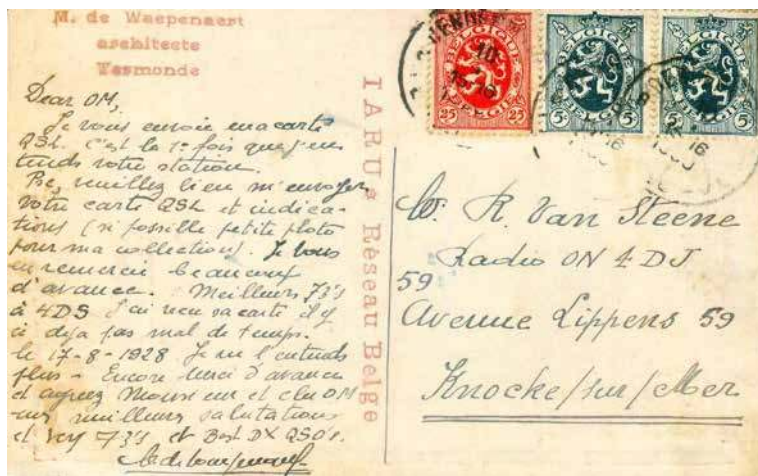 M. de Waepenaert
architecte
Termonde
Dear OM,
Je vous envoie ma carte
QSL. C'est la 1e fois que j'en
tends votre station.
Pse, veuillez bien m'envoyer
votre carte QSL et indica-
tions (si possible petite photo
pour ma collection). Je vous
en remercie beaucoup
d'avance. Meilleurs 73's
à 4DS J'ai reçu sa carte il y
a déjà pas mal de temps.
le 17-8-1928 Je ne l'entends
plus - Encore merci d'avance
et agréez Monsieur et cher OM
mes meilleurs salutations
et vy 73's et Best DX QSO's.
IARU Réseau Belge
BELGIQUE
BELGIË
25 25
BELGIQUE
BELGIË
5c 5c
BELGIQUE
BELGIË
5c 5c
R. Van Steene
Radio ON 4 DJ
59
Avenue Lippens 59
Knocke/sur/Mer